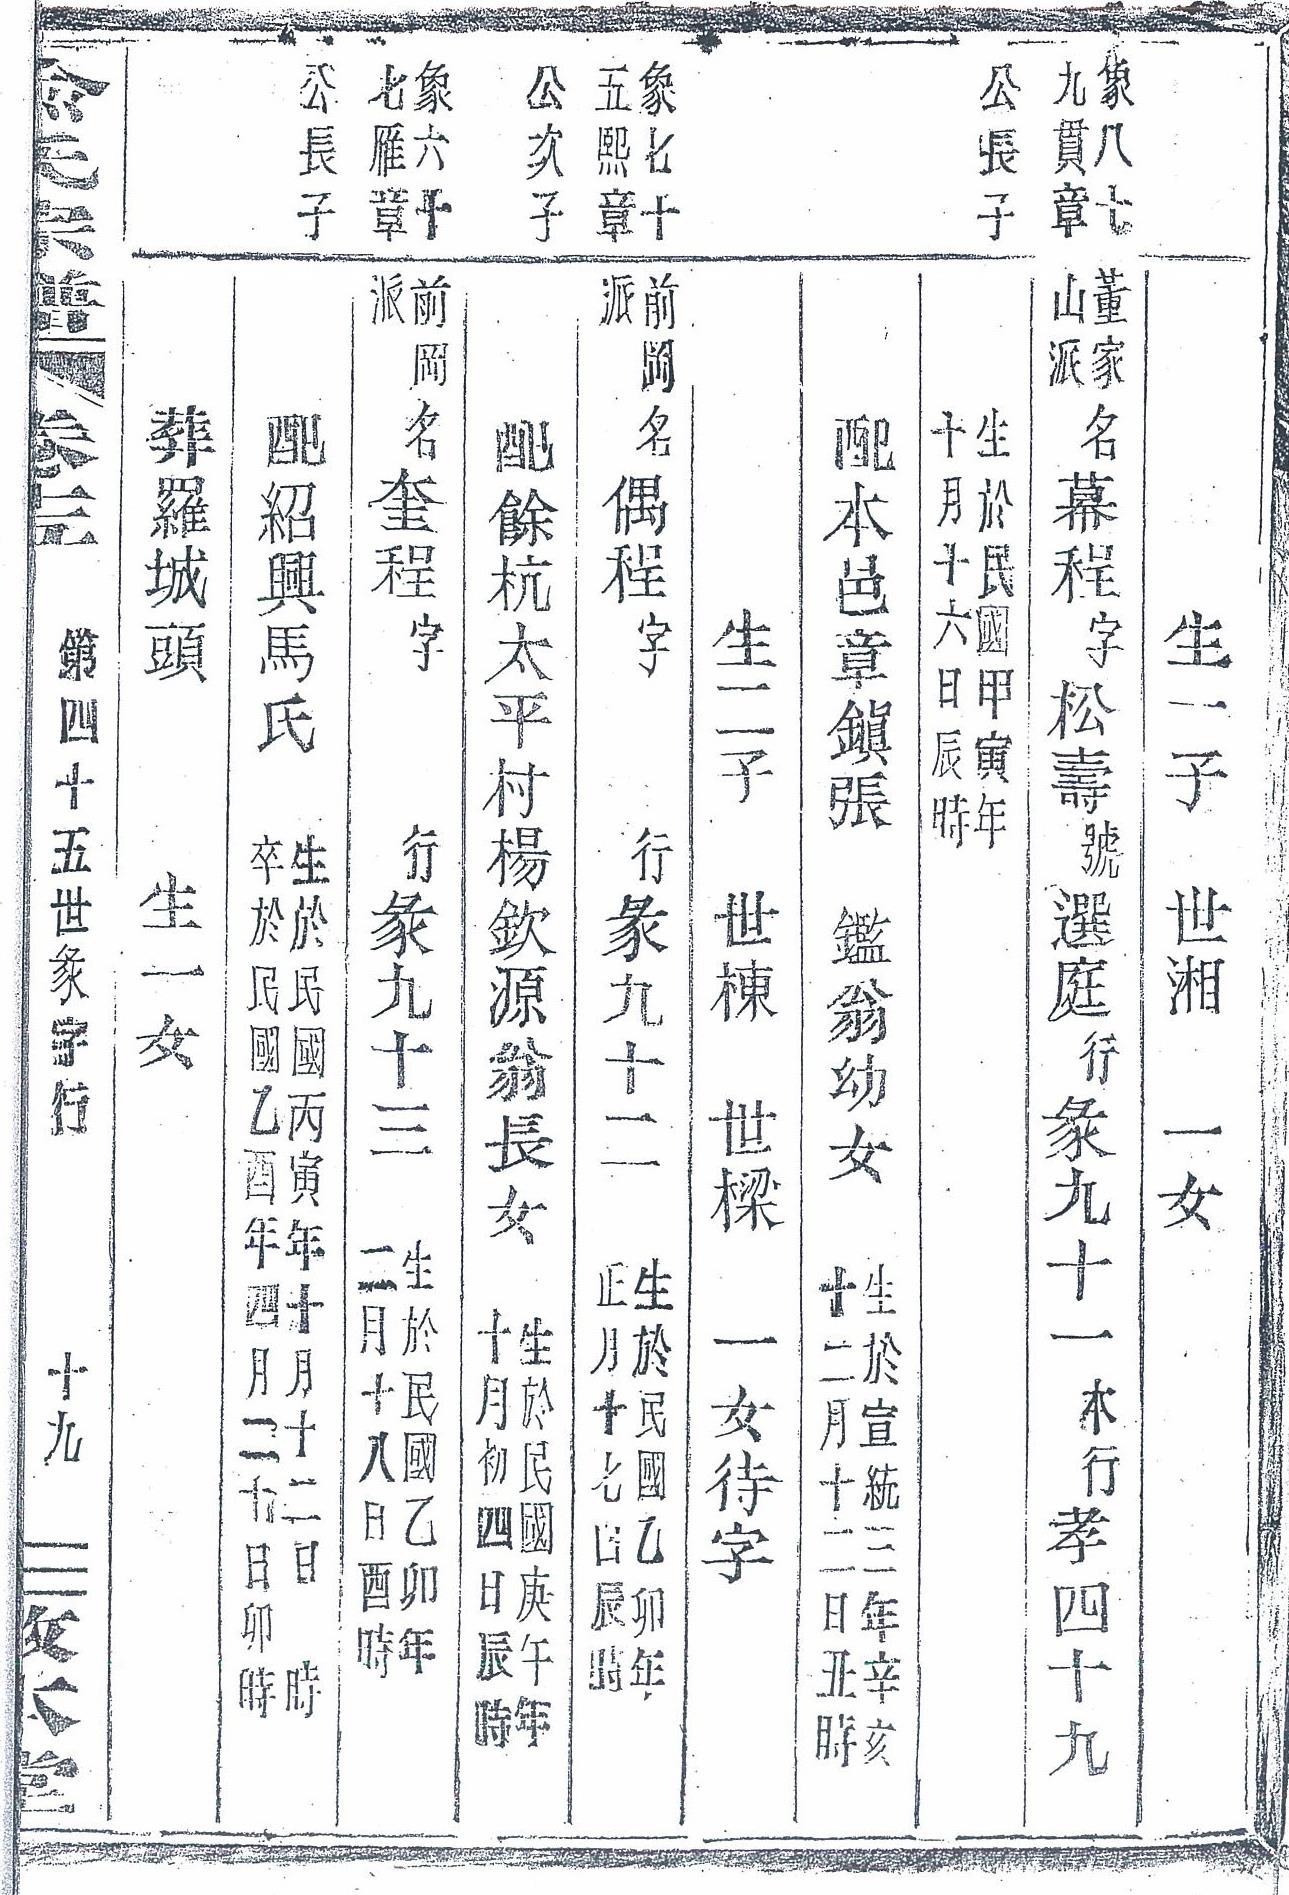 生一子 世湘 一女
象八七
九貫章
公長子
董家
山派
名幕程字松壽號選庭行彖九十一 本行孝四十九
生於民國甲寅年
十月十六日辰時
配本邑章鎮張 鑑翁幼女
生於宣統三年辛亥
十二月十二日丑時
生二子 世棟 世樑 一女待字
象七十
五熙章
公次子
前岡
派
名偶程字 行彖九十二
生於民國乙卯年
正月十七日辰時
配餘杭太平村楊欽源翁長女
生於民國庚午年
十月初四日辰時
象六十
七雁章
公長子
前岡
派
名奎程字 行彖九十三
生於民國乙卯年
二月十八日酉時
配紹興馬氏
生於民國丙寅年十月十二日 時
卒於民國乙酉年四月二十日卯時
葬羅城頭 生一女
氏宗譜 卷三 第四十五世彖字行 十九 堂